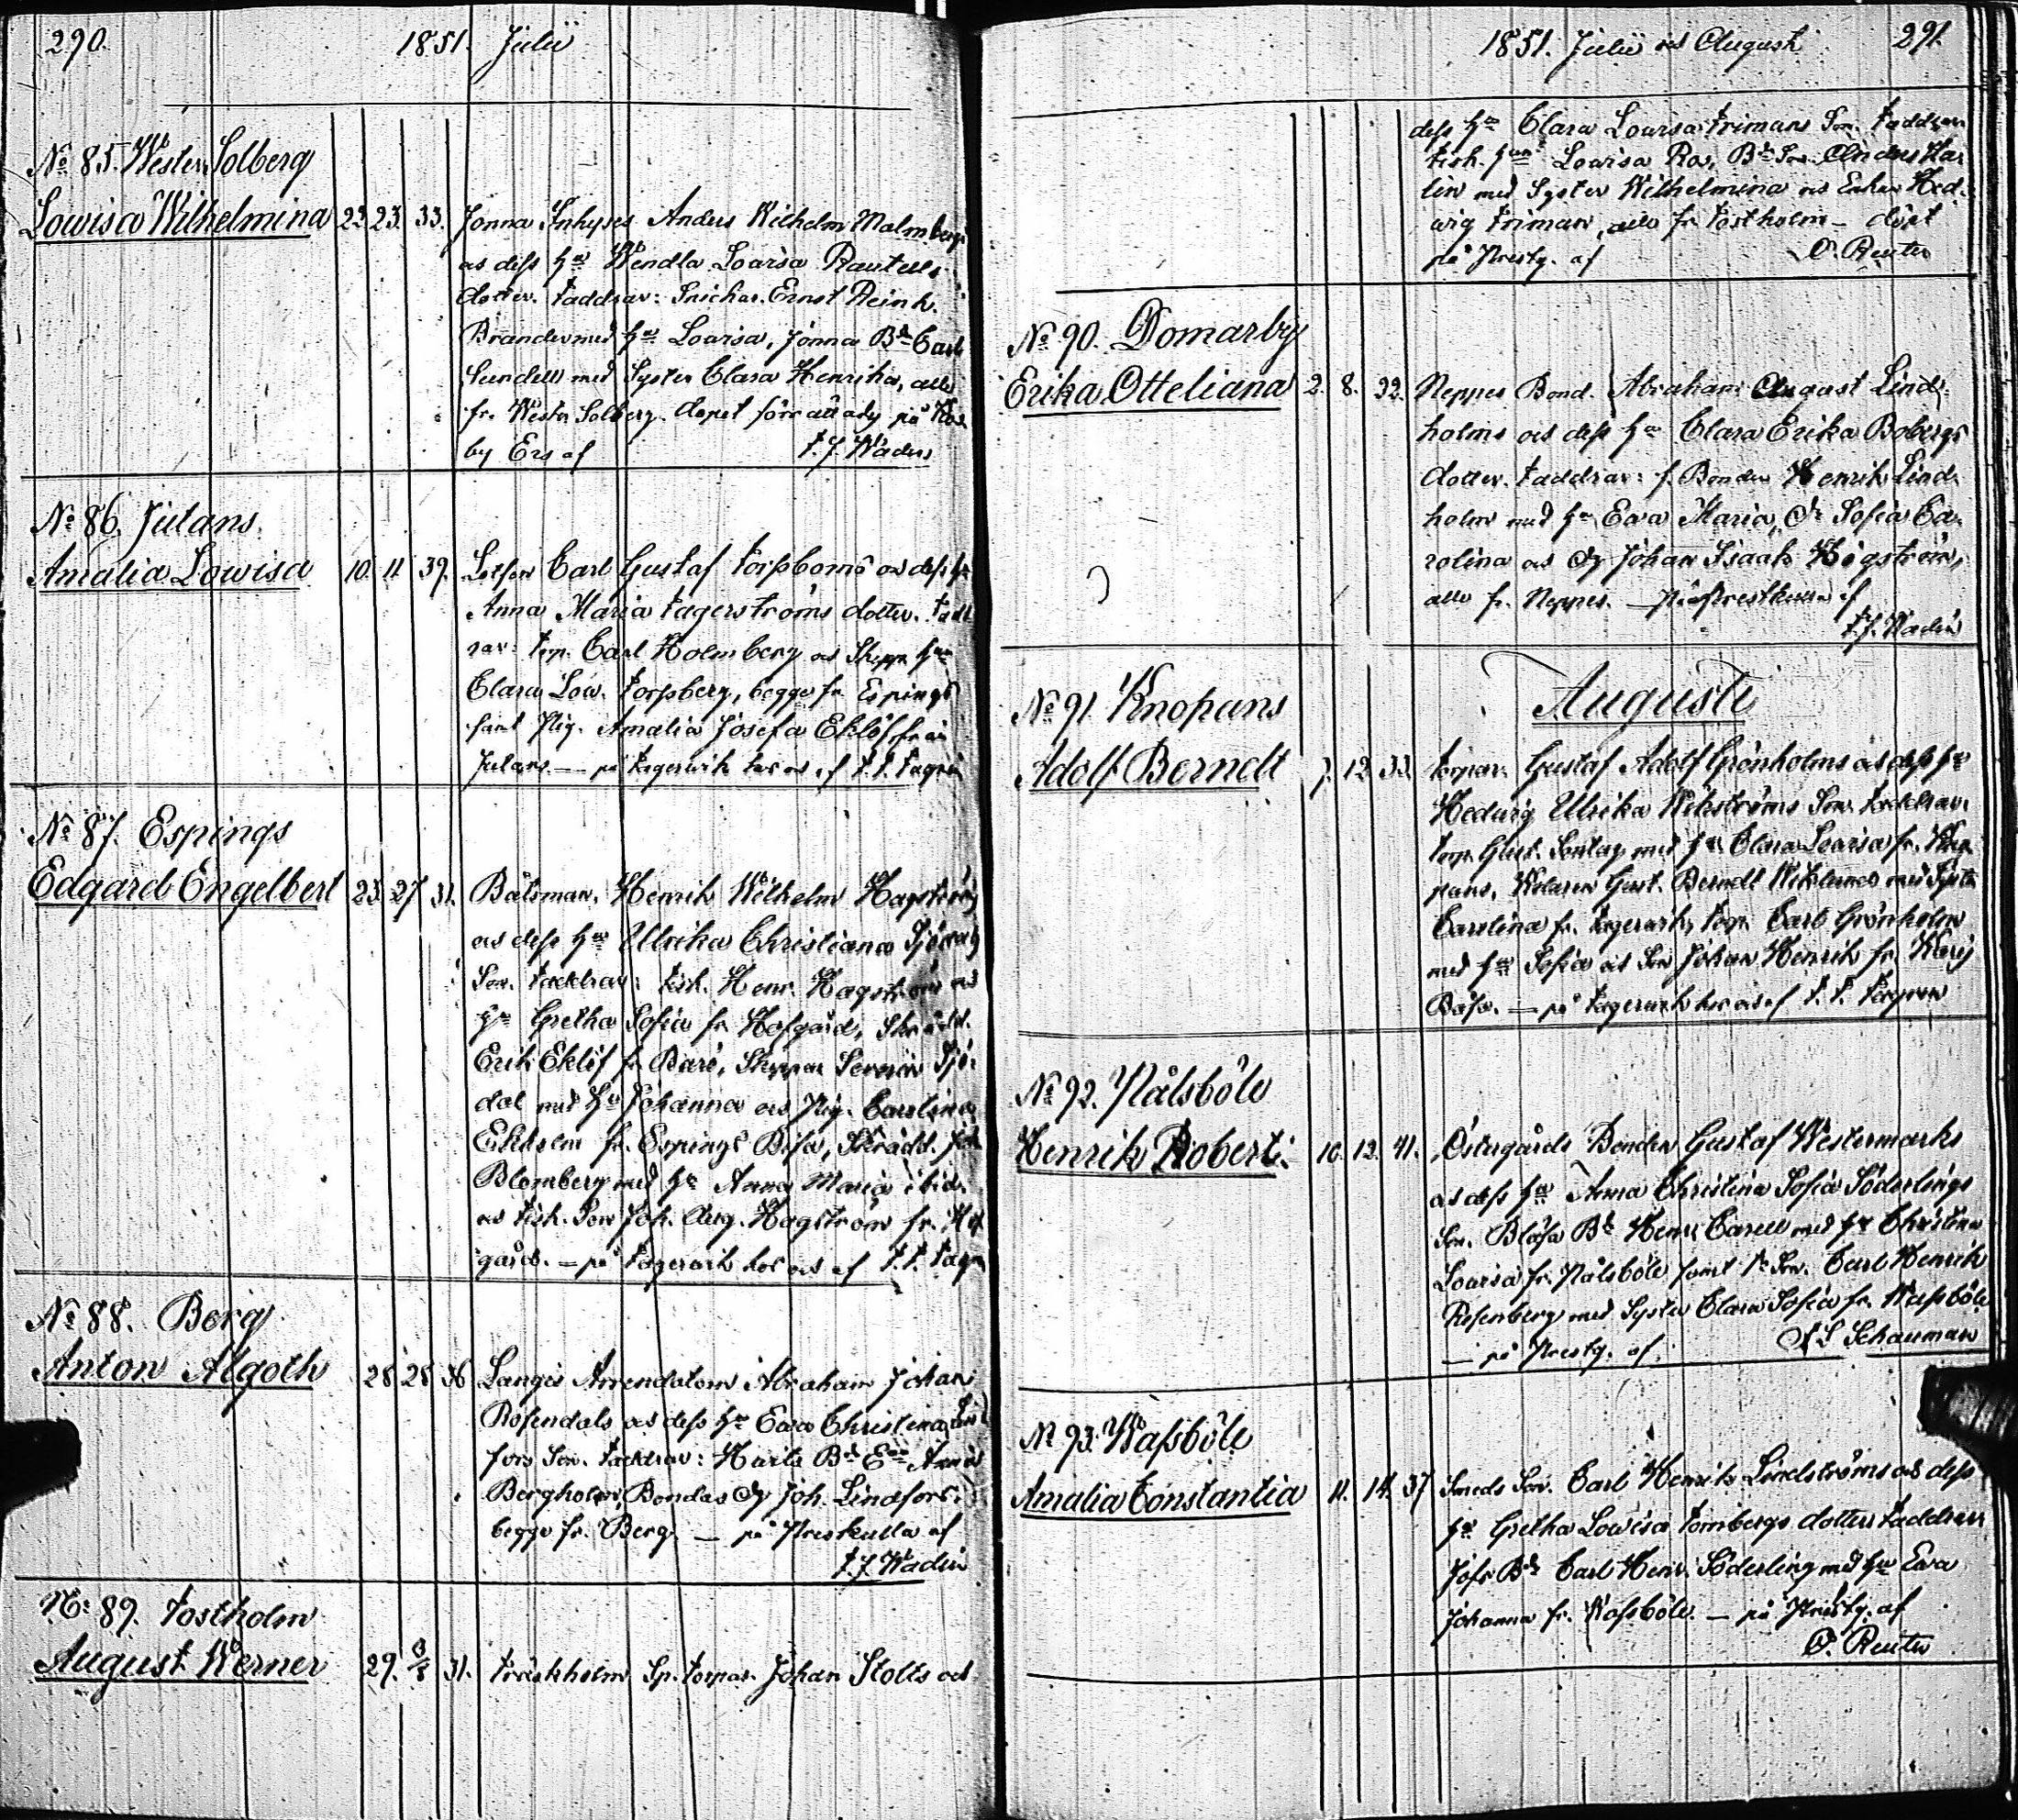 290.
1851. Julii
No 85. Wester Solberg
Lowisa Wilhelmina 23. 23. 33. Jonna Inhyses Anders Wilhelm Malmbergs
as dess hu Wendla Lovisa Rautells
dotter. Faddrar: Snickar. Ernst Reinh.
Brander med hu Lovisa, Jonna Bd Carl
Sundell med Syster Clara Henrika, alle
fr. Westr Solberg. döpet förr att ady på
by Ers af F. J. Wadén
No 86. Jutans.
Amalia Lowisa 10. 11 39. Lotsen Carl Gustaf Forssboms as dess hu
Anna Maria Fagerströms dotter. Fadd
rar: Torp. Carl Holmberg as Skepp. hun
Clara Low. Forssberg, begge fr. Espings
samt Pig. Amalia Josefa Eklöf från
Jutans. — på Fagervik hos as af F. F. Fagrén
No 87. Espings
Edgard Engelbert 23. 27 31. Båtsman. Henrik Wilhelm Hagströms
as dess hu Ulrika Christiana
Son. Faddrar: Fisk. Henr. Hagström as
hu Gretha Sofia fr. Hofgård, Skrädd.
Erik Eklöf fr. Barö, Skeppar Severin Sjö-
dal med hu Johanna as Pig. Carolina
Ekholm fr. Espings Bisa, Skrädd. Joh
Blomberg med hu Anna Maria ibid.
as Fisk. Son Joh. Aug. Hagström fr. Hof
gård. — på Fagervik hos as af F. F. Fagr
No 88. Berg
Anton Algoth 28 28 36 Langis Arrendatorn Abraham Johan
Rosendals as dess hu Eva Christina Lind
fors Son. Faddrar: Harts Bd Ea Anna
Bergholm, Bondas Dg Joh. Lindfors.
begge fr. Berg. — på Preskulla af
F. J. Wadén
No 89. Tostholm
August Werner 29. 3/8 31. Träskholm Sp. Torpar. Johan Stolts as
1851. Julii as Augusti
291.
dess hu Clara Lovisa Frimans Son. Faddrar
Fisk. hun Lowisa Ros, Bd Son. Anders Kar
lin med Syster Wilhelmina as Enkan Hed-
wig Friman, alle fr. Tostholm — döpt
på Prestg. af O. Reuter
No 90. Domarby
Erika Otteliana 2. 8. 32. Neppes Bond. Abraham August Lind-
holms as dess hu Clara Erika Bobergs
dotter. Faddrar: f. Bonden Henrik Lind-
holm med hu Eva Maria, Dr Sofia Ca-
rolina as Dg Johan Isaak Högström,
alle fr. Neppes. — På Prestkulla af
F. J. Wadén
Augusti
No 91. Knopans
Adolf Berndt 7. 12 33. Torpar. Gustaf Adolf Grönholms as dess hu
Hedwig Ulrika Wikströms Son. Faddrar:
Torp. Gust. Sontag med hu Clara Lovisa fr. Kno
pans, Gust. Berndt Wiklund med Syster
Carolina fr. Fagervik, Torp. Carl Grönholm
med hu Sofia as Son Johan Henrik fr.
Båsa. — på Fagervik hos as af F. F. Fagrén
No 92. Pålsböle
Henrik Robert. 10. 12. 41. Östergårds Bonden Gustaf Westermarks
as dess hu Anna Christina Sofia Söderlings
Son. Blåsa Bd Henr. Carell med hu Christina
Lovisa fr. Pålsböle samt Bd Son. Carl Henrik
Rosenberg med Syster Clara Sofia fr. Wassböle
— på Prestg. af. F L Schauman
No 93. Wassböle
Amalia Constantia 11. 14. 37 Smeds Son. Carl Henrik Lindströms as dess
hu Gretha Lowisa Törnbergs dotter. Faddrar
Jofs Bd Carl Henr. Söderling med hu Eva
Johanna fr. Wassböle. — på Prestg. af
O. Reuter